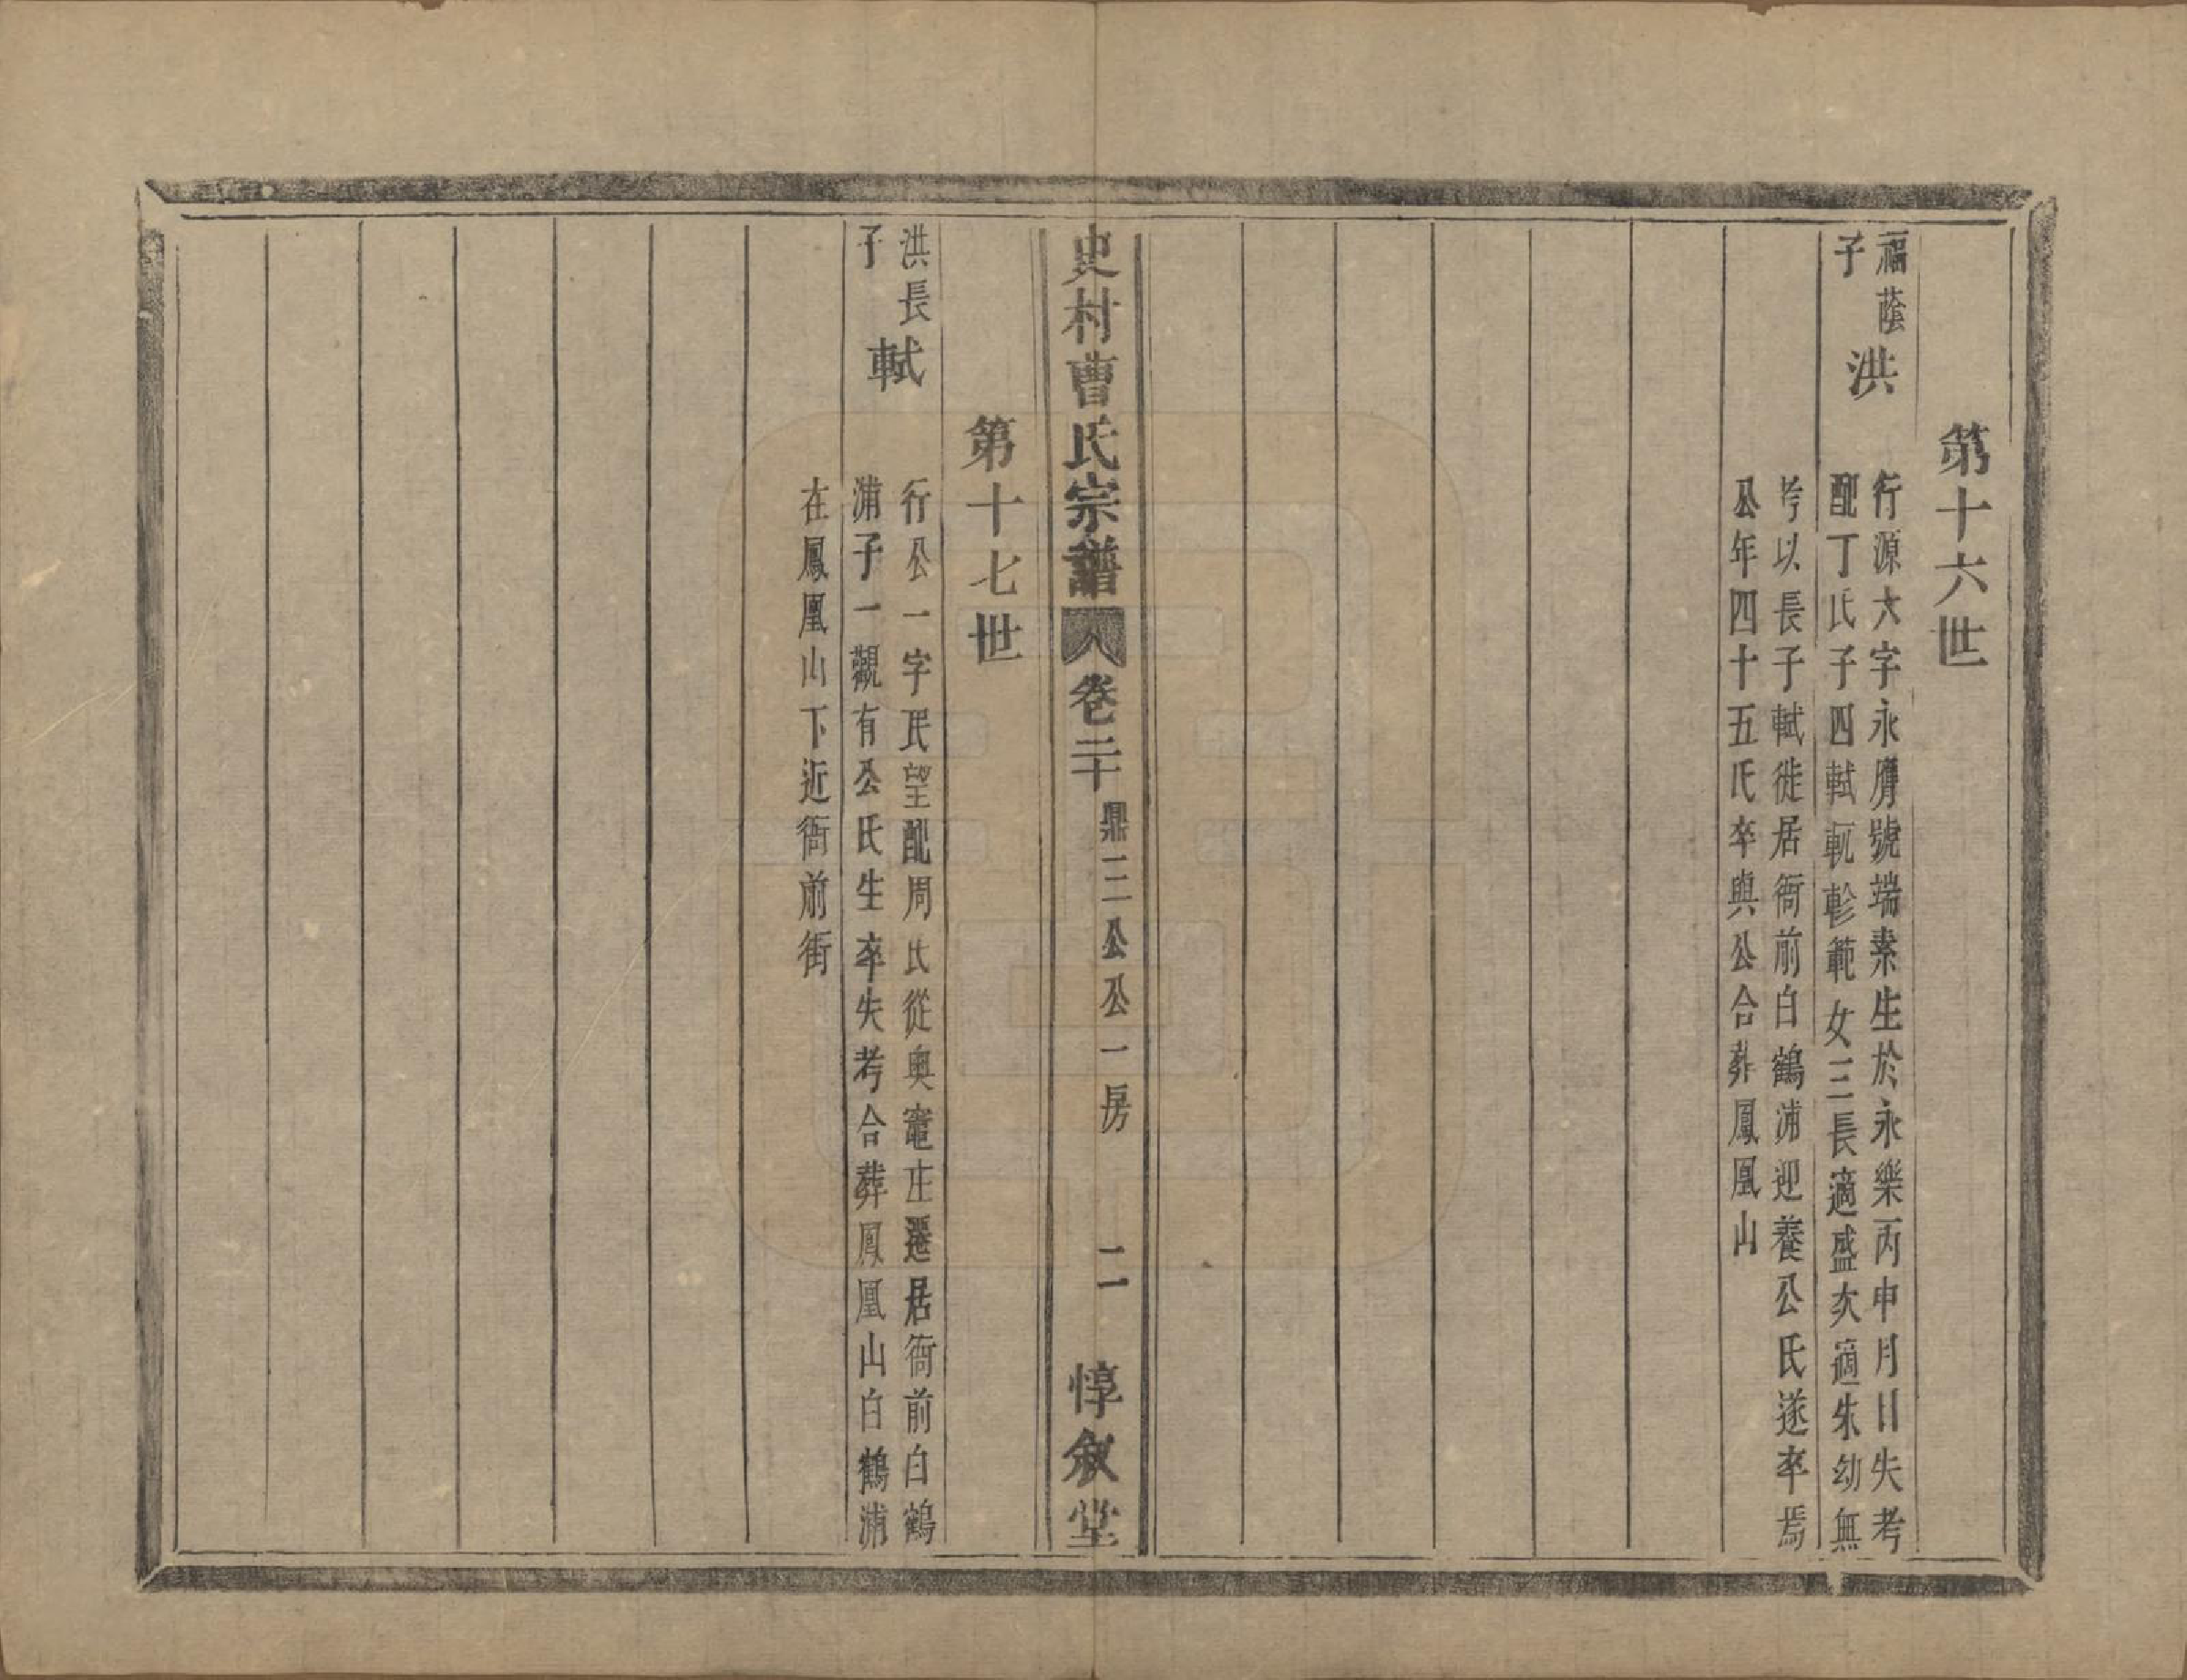 第十六世
福蔭
子
洪
行源大字永膺號端素生於永樂丙申月日失考
配丁氏子四軾軏軫範女三長適盛次適朱幼無
考以長子軾徙居衙前白鶴浦迎養公氏遂卒焉
公年四十五氏卒與公合葬鳳凰山
史村曹氏宗譜
卷二十
鼎三公公一房
二
惇敘堂
第十七世
洪長
子
軾
行公一字民望配周氏從奧竈庄遷居衙前白鶴
浦子一觀有公氏生卒失考合葬鳳凰山白鶴浦
在鳳凰山下近衙前街